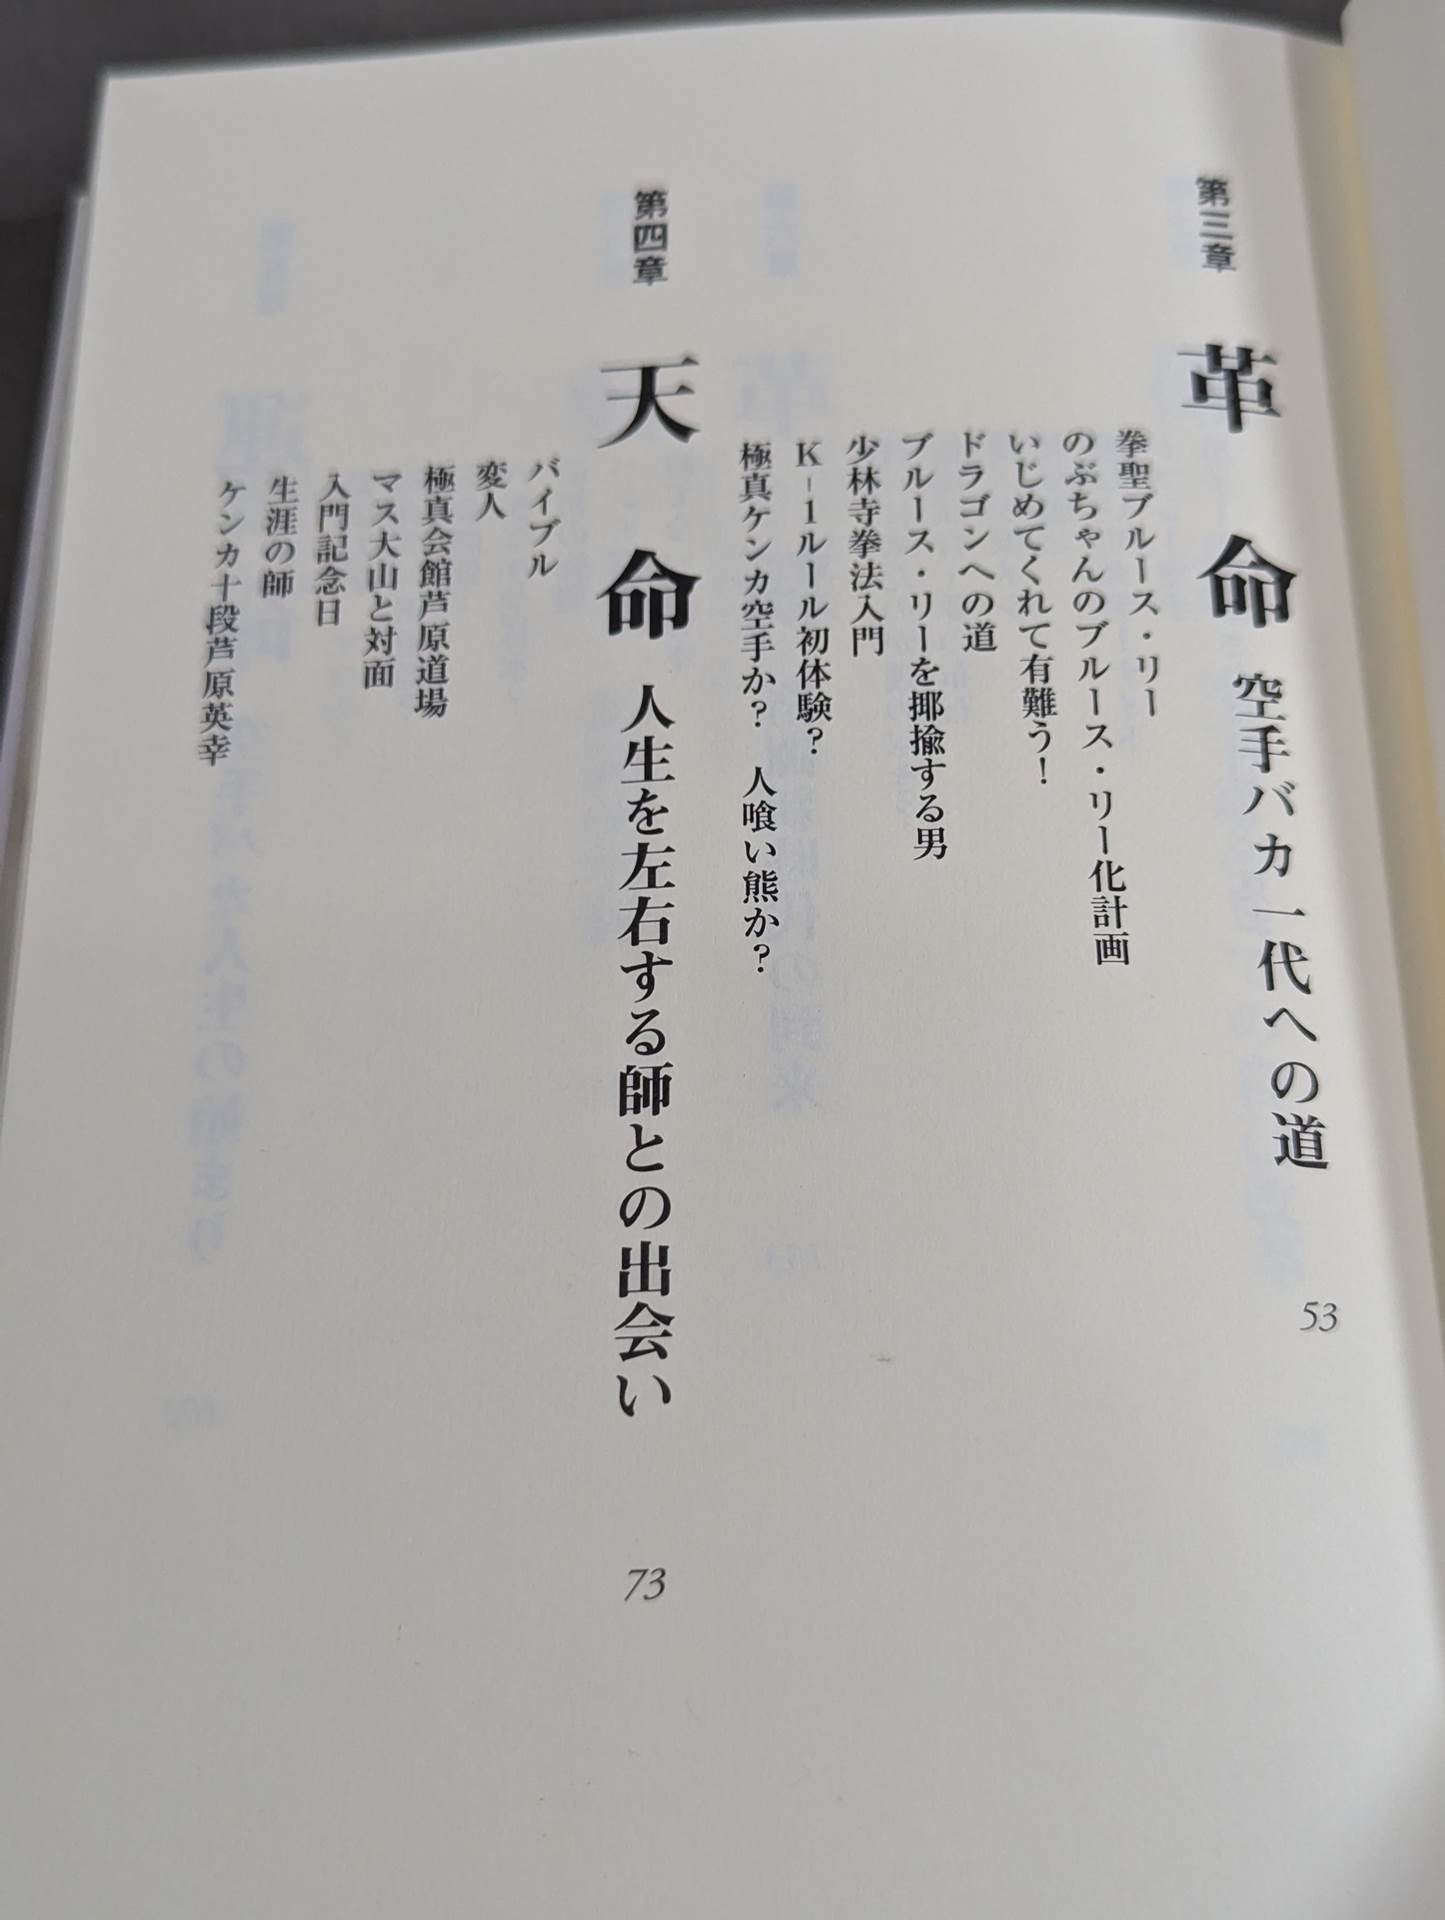 第三章 革命 空手バカ一代への道 53
拳聖ブルース・リー
のぶちゃんのブルース・リー化計画
いじめてくれて有難う！
ドラゴンへの道
ブルース・リーを揶揄する男
少林寺拳法入門
K－1ルール初体験？
極真ケンカ空手か？ 人喰い熊か？
第四章 天命 人生を左右する師との出会い 73
バイブル
変人
極真会館芦原道場
マス大山と対面
入門記念日
生涯の師
ケンカ十段芦原英幸